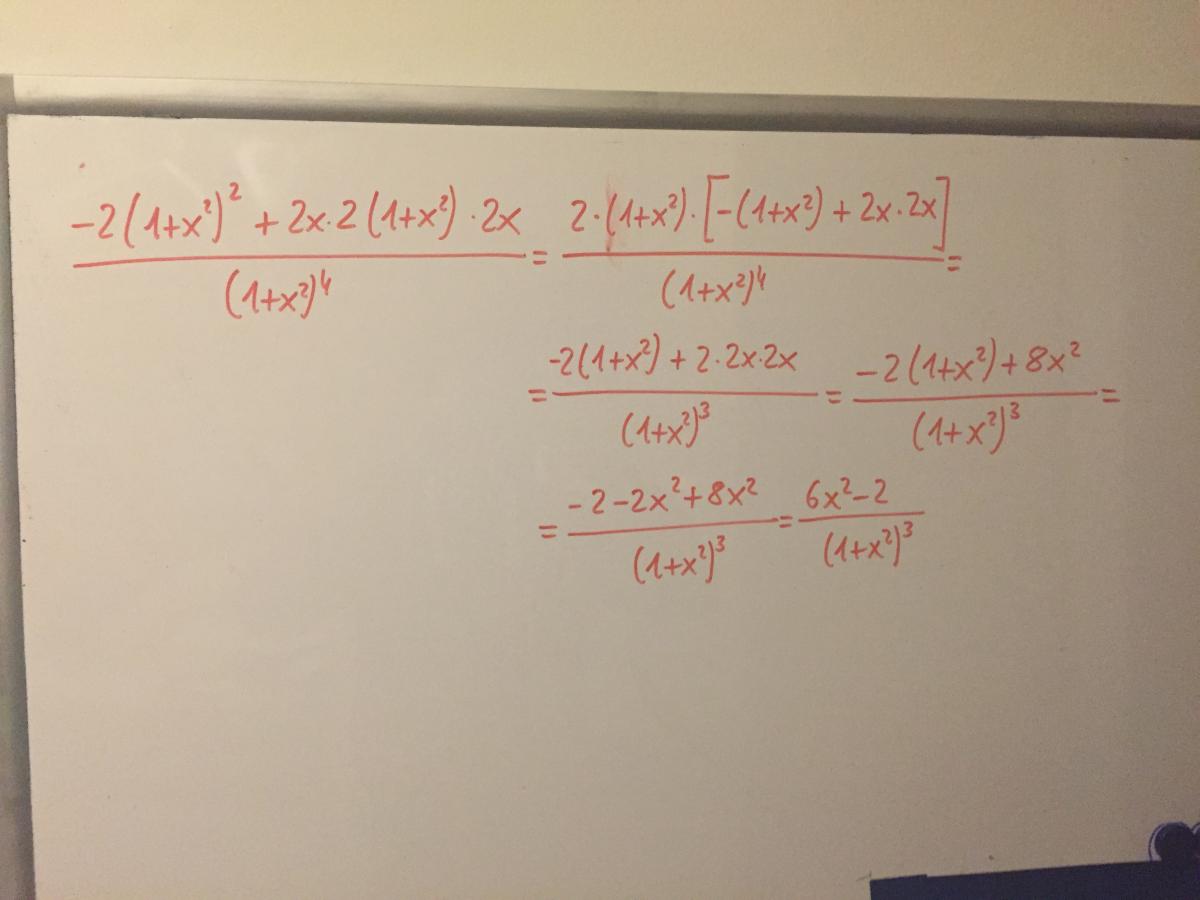 (-2(1+x²)² + 2x·2(1+x²)·2x)/((1+x²)⁴) = (2·(1+x²)·[-(1+x²)+2x·2x])/((1+x²)⁴) =
= (-2(1+x²)+2·2x·2x)/((1+x²)³) = (-2(1+x²)+8x²)/((1+x²)³) =
= (-2-2x²+8x²)/((1+x²)³) = (6x²-2)/((1+x²)³)